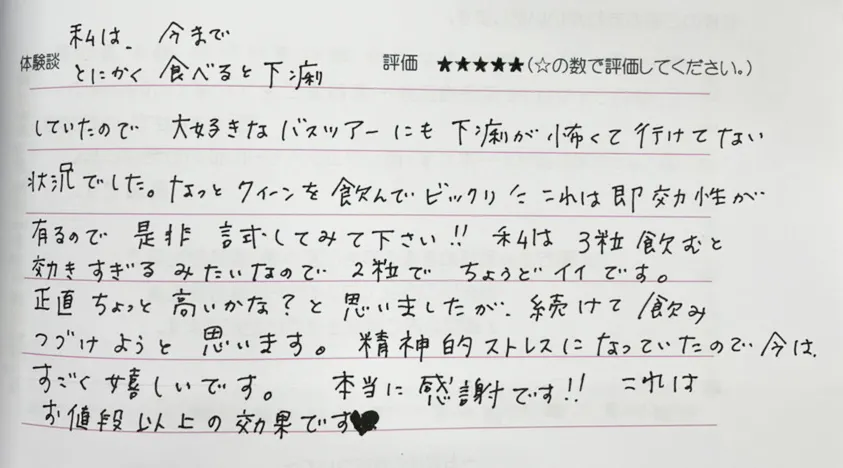 私は、今まで
体験談 とにかく 食べると下痢 評価 ★★★★★(☆の数で評価してください。)
していたので 大好きな バスツアーにも 下痢が怖くて行けてない
状況でした。なっとクイーンを飲んでビックリ!! これは即効性が
有るので 是非 試してみて下さい!! 私は 3粒飲むと
効きすぎるみたいなので 2粒で ちょうどイイです。
正直 ちょっと 高いかな?と 思いましたが、続けて 飲み
つづけようと 思います。 精神的ストレスになっていたので 今は、
すごく嬉しいです。 本当に 感謝です!! これは
お値段以上の効果です♥